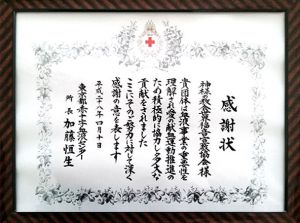 感謝状
貴団体は献血事業の重要性を
理解され愛の献血運動推進の
ため積極的に協力し多大な
貢献をされました
ここにそのご努力に対して深く
感謝の意を表します
平成二十八年四月十日
東京都赤十字血液センター
所長 加藤恒生